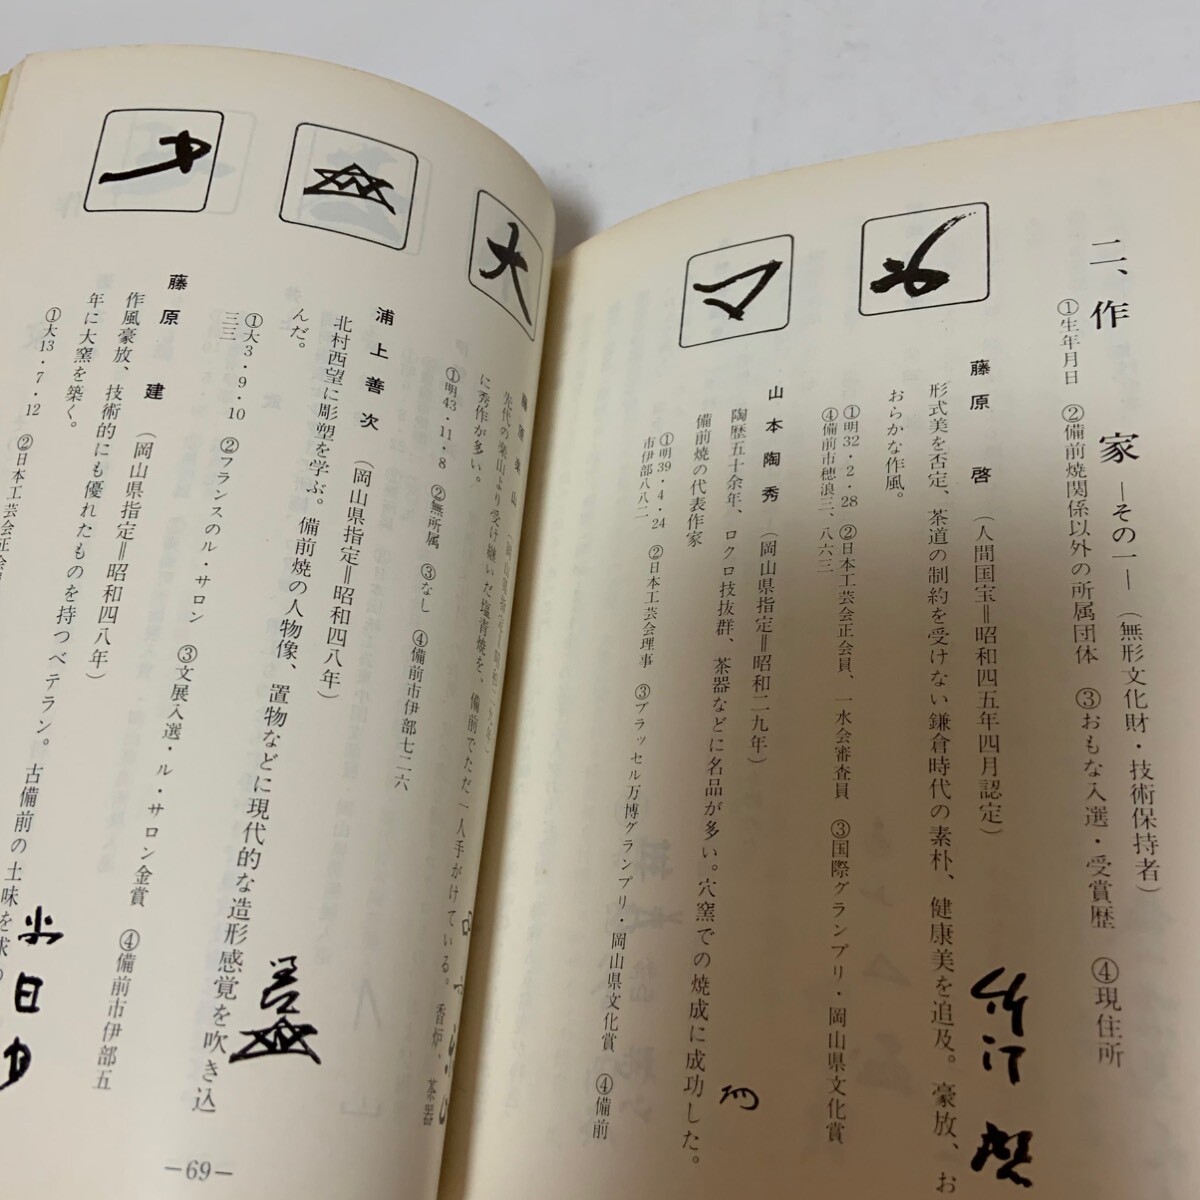 二、作家 ―その一―（無形文化財・技術保持者）
①生年月日 ②備前焼関係以外の所属団体 ③おもな入選・受賞歴 ④現住所
藤原啓（人間国宝＝昭和四五年四月認定）
形式美を否定、茶道の制約を受けない鎌倉時代の素朴、健康美を追及。豪放、お
おらかな作風。
①明32・2・28 ②日本工芸会正会員、一水会審査員 ③国際グランプリ・岡山県文化賞
④備前市穂浪三、八六三
山本陶秀（岡山県指定＝昭和二九年）
陶歴五十余年、ロクロ技抜群、茶器などに名品が多い。穴窯での焼成に成功した。
備前焼の代表作家
①明39・4・24 ②日本工芸会理事 ③ブラッセル万博グランプリ・岡山県文化賞 ④備前
市伊部八八二
先代の楽山より受け継いだ塩青焼を、備前でただ一人手がけている。香炉、茶器
に秀作が多い。
①明43・11・8 ②無所属 ③なし ④備前市伊部七二六
浦上善次（岡山県指定＝昭和四八年）
北村西望に彫塑を学ぶ。備前焼の人物像、置物などに現代的な造形感覚を吹き込
んだ。
①大3・9・10 ②フランスのル・サロン ③文展入選・ル・サロン金賞 ④備前市伊部五
三三
藤原建（岡山県指定＝昭和四八年）
作風豪放、技術的にも優れたものを持つベテラン。古備前の土味を求
年に大窯を築く。
①大13・7・12 ②日本工芸会正会員
―69―